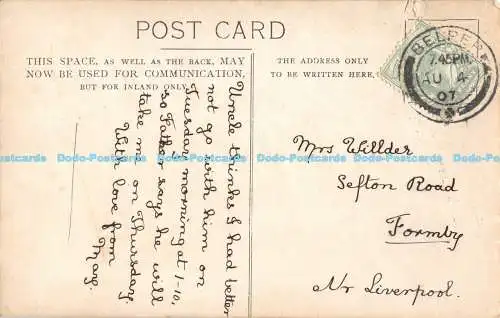 POST CARD
THIS SPACE, AS WELL AS THE BACK, MAY
NOW BE USED FOR COMMUNICATION,
BUT FOR INLAND ONLY.
THE ADDRESS ONLY
TO BE WRITTEN HERE.
BELPER
7.45PM
AU 4
07
Uncle thinks I had better
not go with him on
Tuesday morning at 1-10,
so Father says he will
take me on Thursday.
With love from
May.
Mrs Willder
Sefton Road
Formby
Nr Liverpool.
Dodo-Postcards Dodo-Postcards Dodo-Postcards Dodo-Postcards Dodo-Postcards Dodo-Postcards